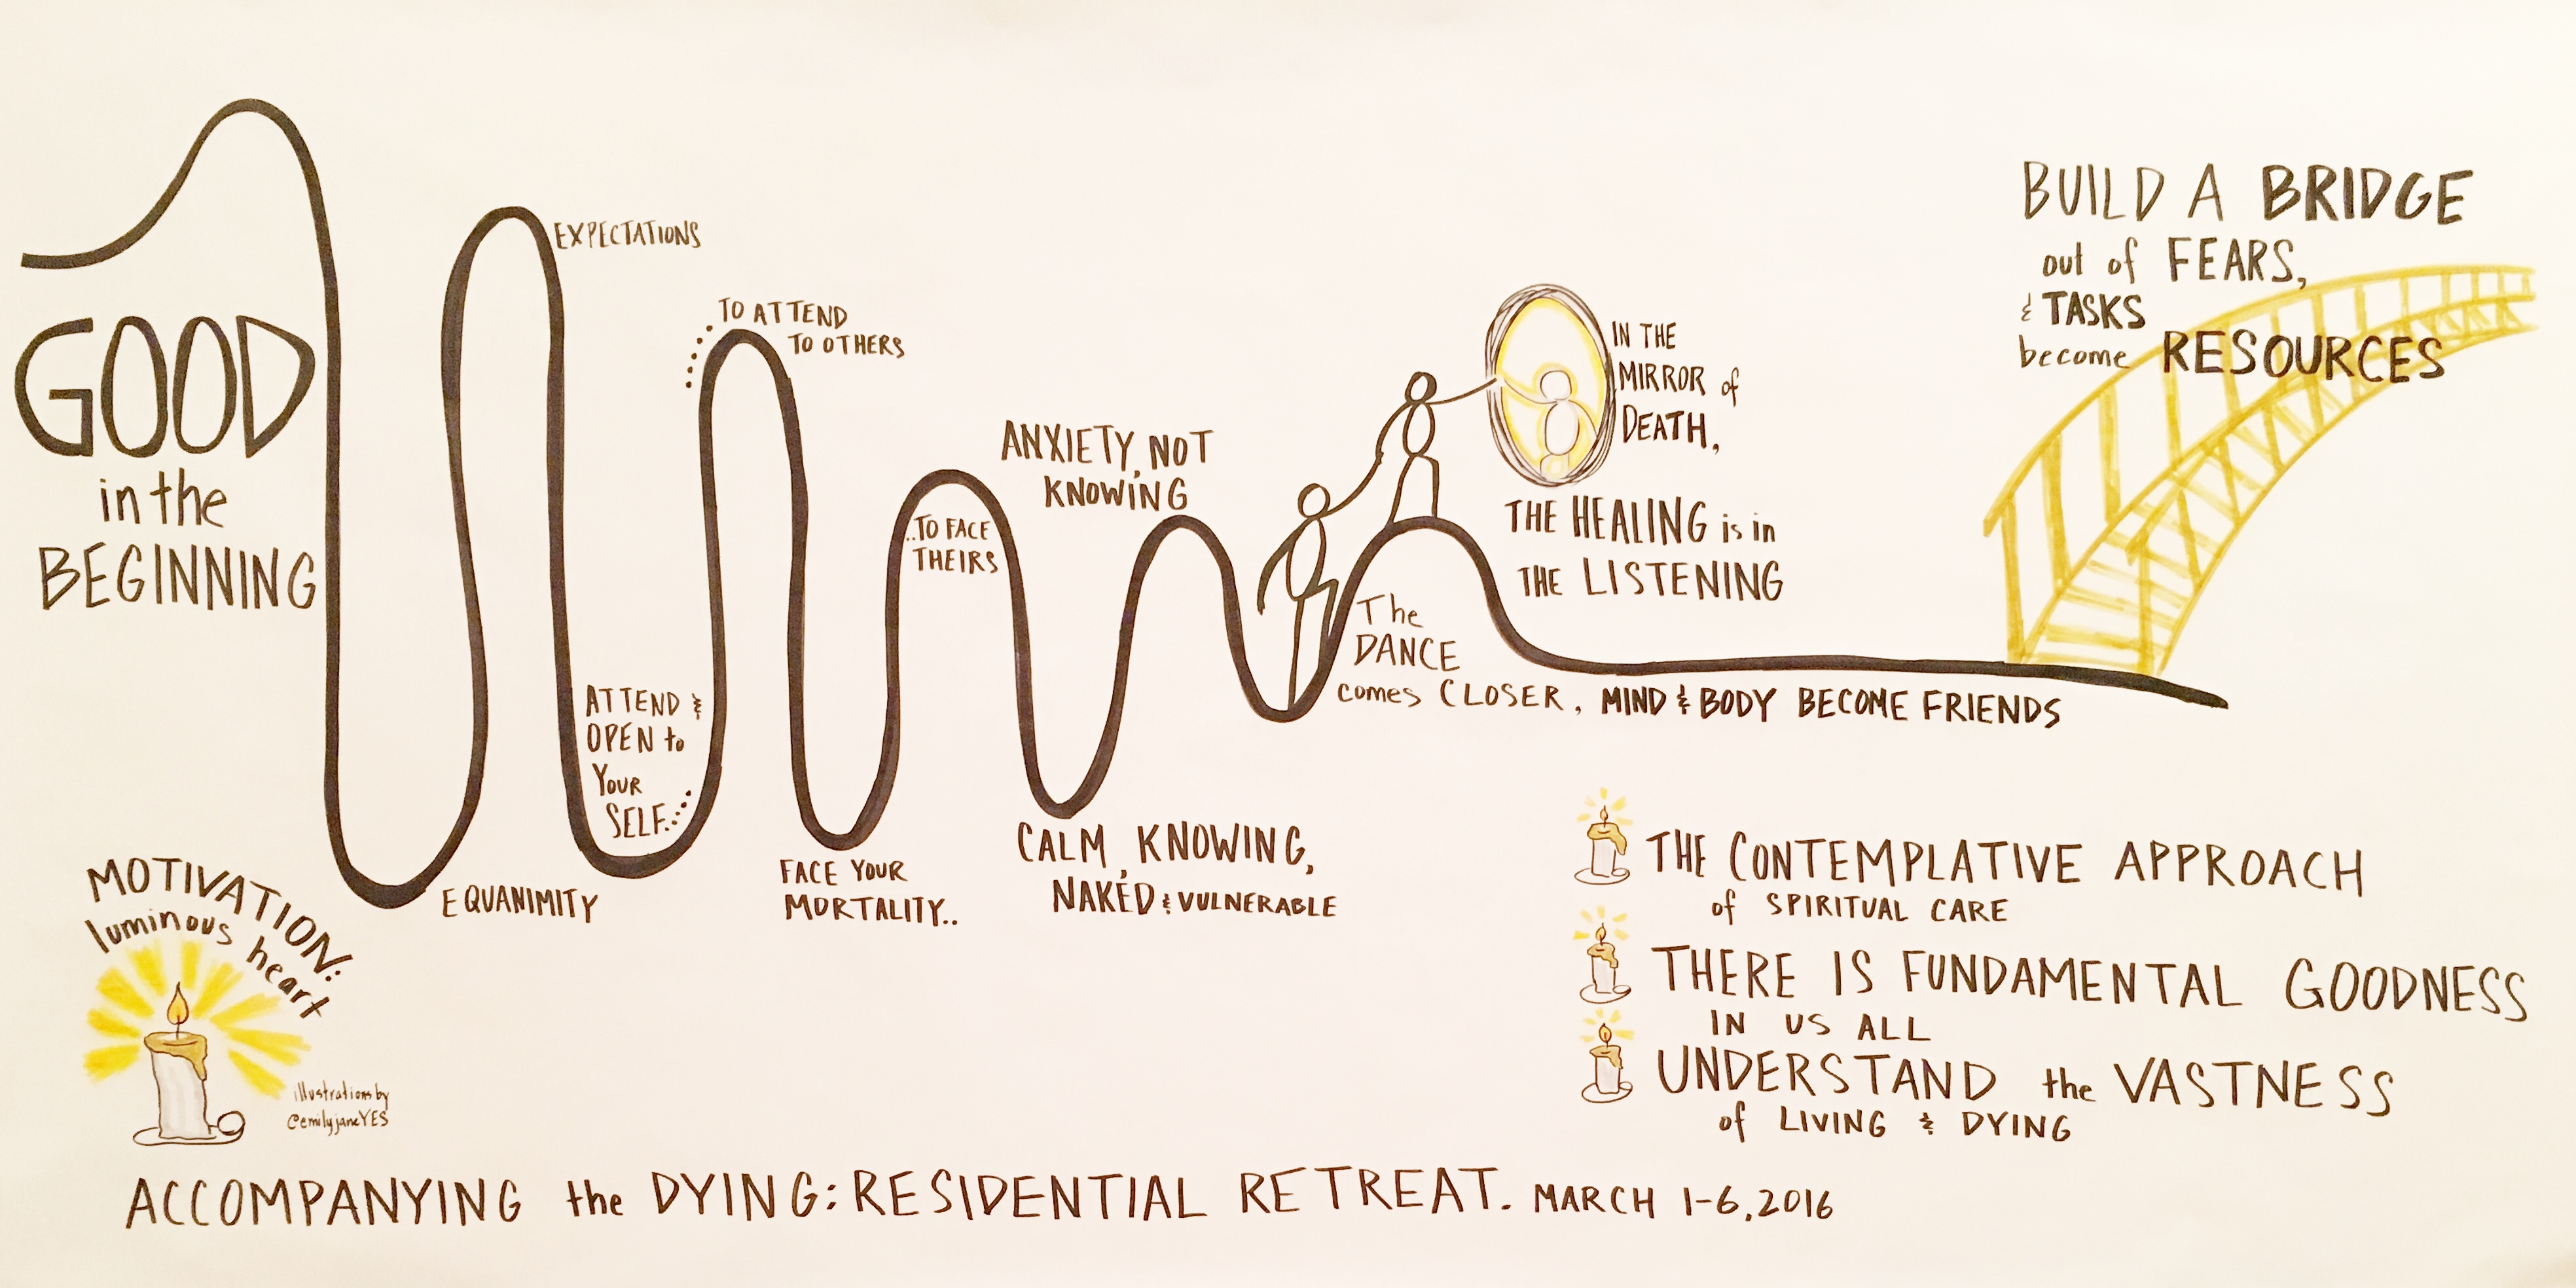 GOOD
in the
BEGINNING
EXPECTATIONS
EQUANIMITY
TO ATTEND
TO OTHERS
ATTEND &
OPEN to
YOUR
SELF...
..TO FACE
THEIRS
FACE YOUR
MORTALITY..
ANXIETY, NOT
KNOWING
CALM, KNOWING,
NAKED & VULNERABLE
The
DANCE
comes CLOSER, MIND & BODY BECOME FRIENDS
IN THE
MIRROR of
DEATH,
THE HEALING is in
THE LISTENING
BUILD A BRIDGE
out of FEARS,
& TASKS
become RESOURCES
MOTIVATION:
luminous heart
illustrations by
@emilyjaneYES
THE CONTEMPLATIVE APPROACH
of SPIRITUAL CARE
THERE IS FUNDAMENTAL GOODNESS
IN US ALL
UNDERSTAND the VASTNESS
of LIVING & DYING
ACCOMPANYING the DYING: RESIDENTIAL RETREAT. MARCH 1-6, 2016